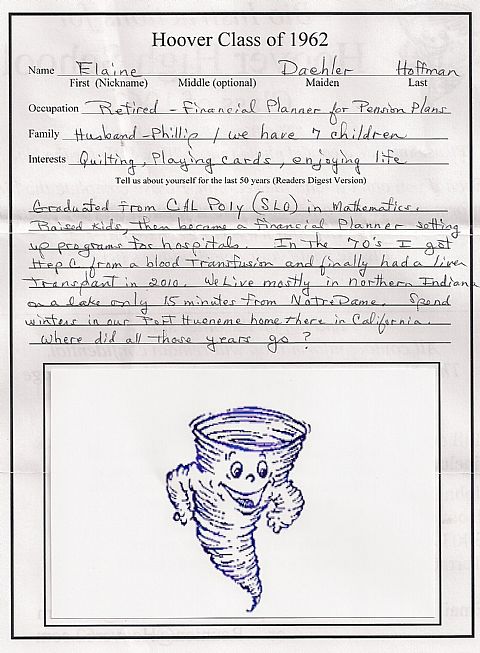 Hoover Class of 1962
Name Elaine Daehler Hoffman
First (Nickname) Middle (optional) Maiden Last
Occupation Retired - Financial Planner for Pension Plans
Family Husband - Phillip / we have 7 children
Interests Quilting, Playing cards, enjoying life
Tell us about yourself for the last 50 years (Readers Digest Version)
Graduated from CAL Poly (SLO) in Mathematics.
Raised kids, then became a financial Planner setting
up programs for hospitals. In the 70's I got
Hep C from a blood Transfusion and finally had a Liver
Transplant in 2010. We Live mostly in northern Indiana
on a lake only 15 minutes from Notre Dame. Spend
winters in our Port Hueneme home there in California.
Where did all those years go?